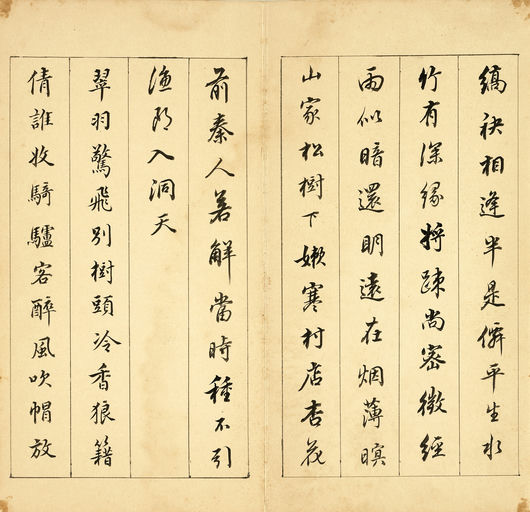 縞袂相逢半是僊平生水
竹有深緣將踈尚密微經
雨似暗還明遠在烟薄暝
山家松樹下嫩寒村店杏花
前秦人若解當時種不引
漁郎入洞天
翠羽驚飛別樹頭冷香狼籍
倩誰收騎驢客醉風吹帽放